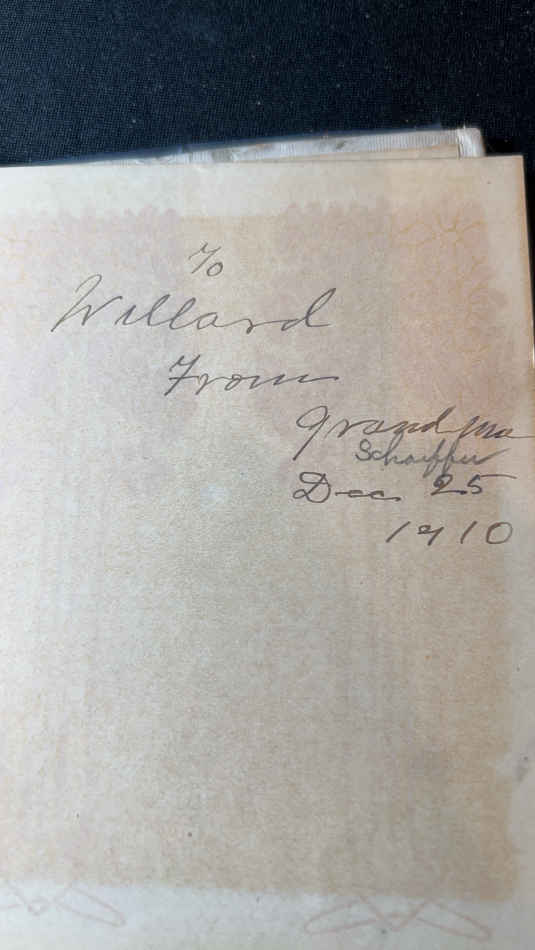 To
Willard
From
Grandma
Schaiffer
Dec 25
1910